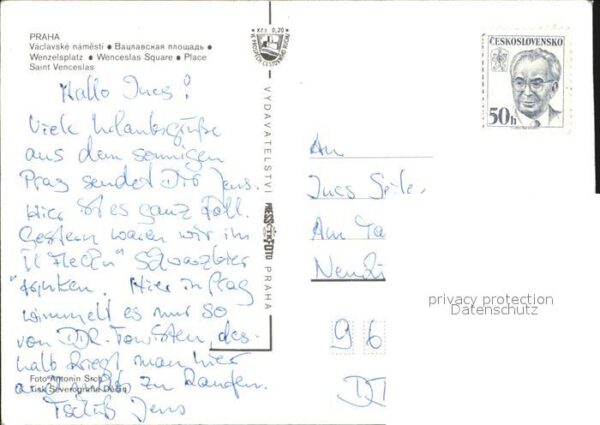 PRAHA
Václavské náměstí ● Вацлавская площадь ●
Wenzelsplatz ● Wenceslas Square ● Place
Saint Venceslas
Kčs 0,20
ČESKOSLOVENSKO
50h
VYDAVATELSTVÍ
PRESSFOTO
PRAHA
Hallo Ines!
Viele Urlaubsgrüße
aus dem sonnigen
Prag sendet Dir Jens.
Hier ist es ganz toll.
Gestern waren wir im
"U Fleků" Schwarzbier
trinken. Hier in Prag
wimmelt es nur so
von DDR-Touristen, des-
halb kriegt man hier
auch nichts zu
Tschüß Jens
Foto Antonín Srch
Tisk Severografie Děčín
An
Ines
Am Ta
96
privacy protection
Datenschutz